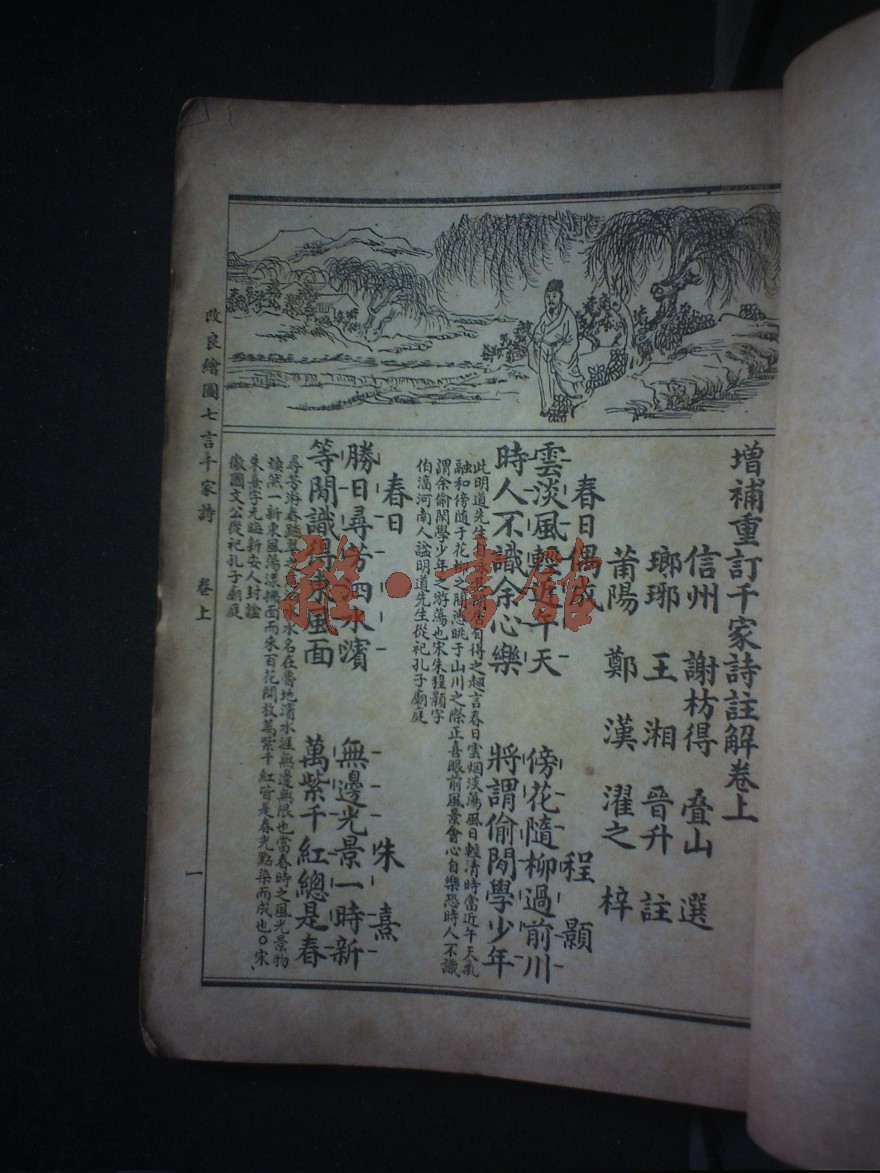 增補重訂千家詩註解卷上
信州 謝枋得 叠山 選
瑯琊 王湘 晉升 註
莆陽 鄭漢濯之 梓
春日偶成 程顥
雲淡風輕近午天 傍花隨柳過前川
時人不識余心樂 將謂偷閒學少年
此明道先生自詠其閒居自得之趣言春日雲烟淡蕩風日輕清時當近午天氣
融和傍隨于花柳之間憑眺于山川之際正喜眼前風景會心自樂恐時人不識
謂余偷閑學少年之游蕩也宋朱程顥字
伯淳河南人謚明道先生從祀孔子廟庭
春日 朱熹
勝日尋芳泗水濱 無邊光景一時新
等閒識得東風面 萬紫千紅總是春
尋芳游春踏翠之 水名在魯地濱水涯無邊無限也當春時之風光景物
煥然一新東風蕩漾拂面而來百花開放萬紫千紅皆是春光點染而成也○宋、
朱熹字元晦新安人封謚
徽國文公從祀孔子廟庭
改良繪圖七言千家詩 卷上 一
雜·書館